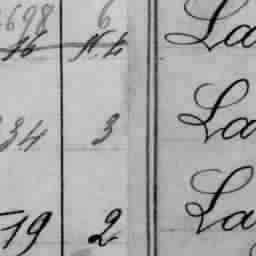 698 6
16 N. b La
34 3 La
19 2 La